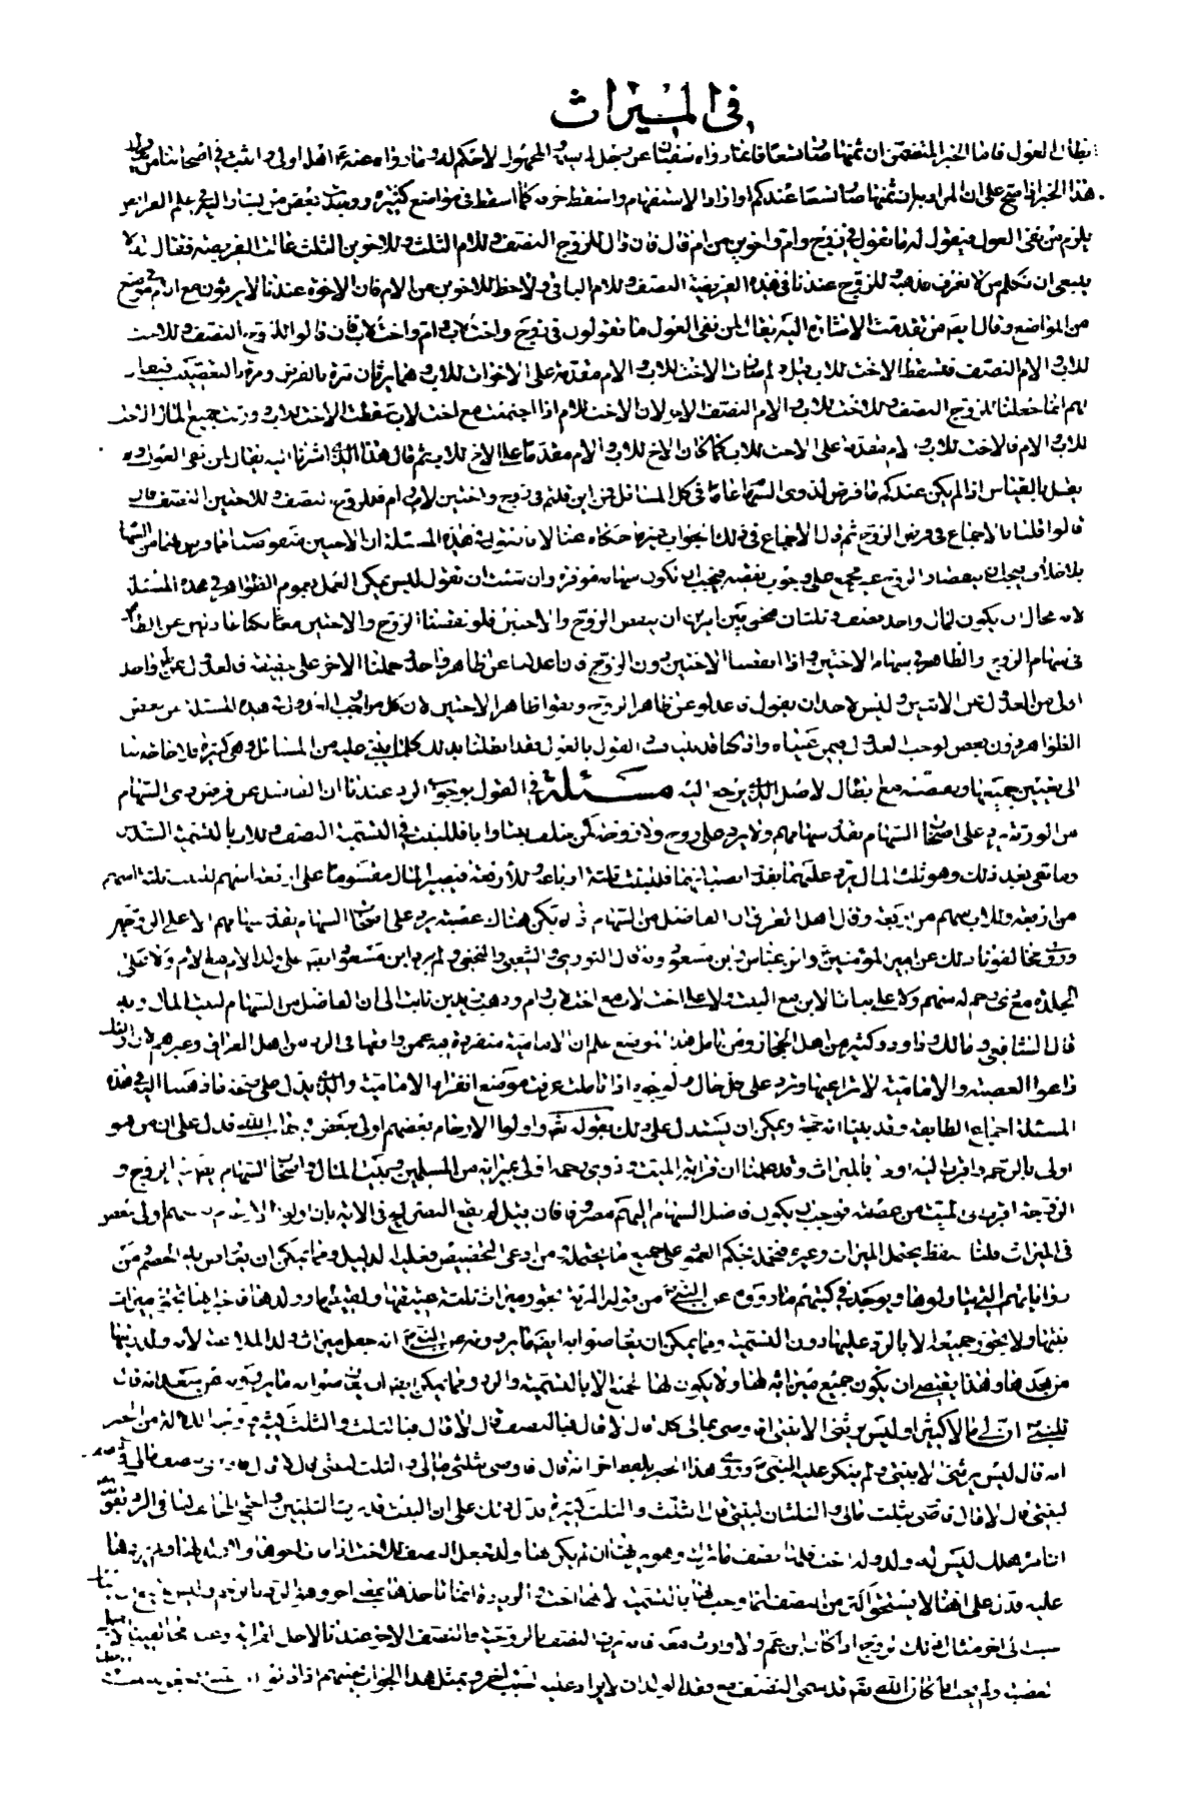 في الميراث
العول فاما الخبر المتضمن ان ثمنها صار تسعا فانما رواه سفيان عن رجل لم يسمه والمجهول لا حكم له وما رواه عنه اهله اولى واثبت في اصحابنا من
هذا الخبر اذا صح على ان المراد به ان ثمنها صار تسعا عندكم او اراد الاستفهام واسقط حرفه كما اسقط في مواضع كثيرة بعض من
يلزم من نفى العول فيقول له ما تقول في زوج وام واخوين من ام قال فان قال للزوج النصف وللام الثلث وللاخوين الثلث عالت الفريضة فقال
ينبغي ان تكلم من لا تعرف مذهبه للزوج عندنا في هذه الفريضة النصف وللام الباقي ولا حظ للاخوين من الام فان الاخوة عندنا لا يرثون مع ام في موضع
من المواضع وقال ايضا من تقدمت الاشارة اليه يقال لمن نفى العول ما تقولون في زوج واخت لاب وام واخت لاب فان قالوا للزوج النصف وللاخت
للاب والام النصف وتسقط الاخت للاب قيل الاخت للاب والام مقدمة على الاخوات للاب وهما يرثان مرة بالفرض ومرة بالتعصيب
لهم انما جعلنا للزوج النصف وللاخت للاب والام النصف الاخر لان الاخت للام اذا اجتمعت مع اخت لاب سقطت الاخت للاب وورثت جميع المال الاخت
للاب والام فالاخت للاب والام مقدمة على الاخت للاب كما كان الاخ للاب والام مقدما على الاخ للاب ثم قال هذا الذي اشرنا اليه يقال لمن نفى العول
بالقياس اذا لم يكن عندكم ما فرض لذوي السهام عاما في كل المسائل فمن اين قلتم في زوج واختين لاب وام للزوج النصف وللاختين النصف فان
قالوا قلنا بالاجماع في فرض الزوج ثم قال الاجماع في ذلك لجواب غير ما حكاه عنا لانا نقول في هذه المسئلة ان الاختين منقوستان
بلا خلاف والزوج مجمع على وجوب نقصه فيجب ان تكون سهامه موفرة وان شئت ان تقول ليس يمكن العمل بعموم الظواهر في هذه المسئلة
لانه محال ان يكون لمال واحد نصف وثلثان فنحن بين امرين ان ننقص الزوج والاختين فلو نقصنا الزوج والاختين معا لكنا عادلين عن الظاهر
في سهام الزوج والظاهر في سهام الاختين واذا نقصنا الاختين دون الزوج فانا عدلنا عن ظاهر واحد وحملنا الاخر على حقيقته فالعدول عن ظاهر واحد
اولى من العدول عن الاثنين وليس لاحد ان يقول فاعدلوا عن ظاهر الزوج وبقوا ظاهر الاختين لان كل من اوجب العدول في هذه المسئلة عن بعض
الظواهر دون بعض اوجب العدول فيمن عيناه واذ كنا قد بينا فساد القول بالعول فقد ابطلنا بذلك كلما بني عليه من المسائل وهي كثيرة فلا حاجة بنا
الى تعيين جميعها ونقضه مع ابطال الاصل الذي يرجع اليه مسئلة في القول بوجوب الرد عندنا ان الفاضل عن فرض ذوي السهام
من الورثة يرد على اصحاب السهام بقدر سهامهم ولا يرد على زوج ولا زوجة كمن خلف بنتا وابا فللبنت في التسمية النصف وللاب بالتسمية السدس
وما بقي بعد ذلك وهو ثلث المال يرد عليهما بقدر انصبائهما فللبنت ثلاثة ارباعه وللاب ربعه فيصير المال مقسوما على اربعة اسهم للبنت ثلثة اسهم
من اربعة وللاب سهم من اربعة وقال اهل العراق ان الفاضل من السهام اذا لم يكن هناك عصبة يرد على اصحاب السهام بقدر سهامهم الا على الزوج
وروى مخالفونا ذلك عن امير المؤمنين وابن عباس وابن مسعود وبه قال الثوري والشعبي والنخعي ولم يرد ابن مسعود ايضا على ولد الام مع الام ولا على
الجدة مع ذي رحم له سهم ولا على بنات الابن مع البنت ولا على اخت لاب مع اخت لاب وام وذهب زيد بن ثابت الى ان الفاضل من السهام لبيت المال وبه
قال الشافعي ومالك وداود وكثير من اهل الحجاز ومن تامل هذا الموضع علم ان الامامية منفردة فيه عمن وافقها في الرد من اهل العراق وغيرهم لان
راعوا العصبة والامامية لا تراعيها وترد على كل حال ووجه اذا تاملت عرفت موضع انفراد الامامية والذي يدل على صحة ما ذهبنا اليه في هذه
المسئلة اجماع الطائفة وقد بينا انه حجة ويمكن ان يستدل على ذلك بقوله تعالى واولوا الارحام بعضهم اولى ببعض في كتاب الله فدل على ان من هو
اولى بالرحم واقرب اليه اولى بالميراث وقد علمنا ان قرابة الميت وذوي رحمه اولى بميراثه من المسلمين وبيت المال واصحاب السهام غير الزوج و
الزوجة اقرب الى الميت من عصبته فوجب ان يكون فاضل السهام اليهم مصروفا فان قيل لم يقع التصريح في الاية بان اولوا الارحام بعضهم اولى ببعض
في الميراث قلنا اللفظ يحتمل الميراث وغيره فنحمله بحكم العموم على جميع ما يحتمله ومن ادعى التخصيص فعليه الدليل ومما يمكن ان يعارض به الخصوم من
رواياتهم التي يتداولونها ويوجد في كتبهم ما رووه عن النبي من قوله المرئة تحوز ميراث ثلثة عتيقها ولقيطها وولدها فاخبر انها تحوز ميراث
بنتها ولا تحوز جميعه الا بالرد عليها دون التسمية ومما يمكن ان يعارضوا به ايضا ما يروونه عن النبي انه جعل ميراث ولد الملاعنة لامه ولذريتها
من بعدها وهذا يقتضي ان يكون جميع ميراثه لها ولا يكون لها ذلك الا بالتسمية والرد ومما يمكن ايضا ان يعارضوا به ما يروونه عن سعد انه قال
للنبي ان لي مالا كثيرا وليس يرثني الا بنتي افاوصي بمالي كله قال لا قال فبالنصف قال لا قال فبالثلث قال الثلث والثلث كثير ووجه الدلالة من الخبر
انه قال ليس يرثني الا بنتي ولم ينكر عليه النبي وروي هذا الخبر بلفظ اخر انه قال فاوصي بثلثي مالي والثلث لبنتي قال لا قال فاوصي بنصف مالي
لبنتي قال لا قال فاوصي بثلث مالي والثلثان لبنتي قال الثلث والثلث كثير فدل ذلك على ان البنت قد ترث الثلثين واحتج المخالف لنا في الرد بقوله
ان امرؤ هلك ليس له ولد وله اخت فلها نصف ما ترك وهو يرثها ان لم يكن لها ولد فجعل النصف للاخت اذا مات اخوها والارث له ولم يردها
عليه فدل على انها لا تستحق اكثر من النصف انما وجب لها بالتسمية لانها اخت والزيادة انما تاخذها لمعنى اخر وهو الرد بالرحم وليس يمتنع ان
سبب الى اخر مثال ذلك زوج اذا كان ابن عم ولا وارث معه فانه يرث النصف بالزوجية والنصف الاخر عندنا لاجل القرابة وعند مخالفينا لاجل
تعصب ولم يجب اذا كان الله تعالى قد سمى النصف مع فقد الولد ان لا يزاد عليه لسبب اخر وبمثل هذا الجواب